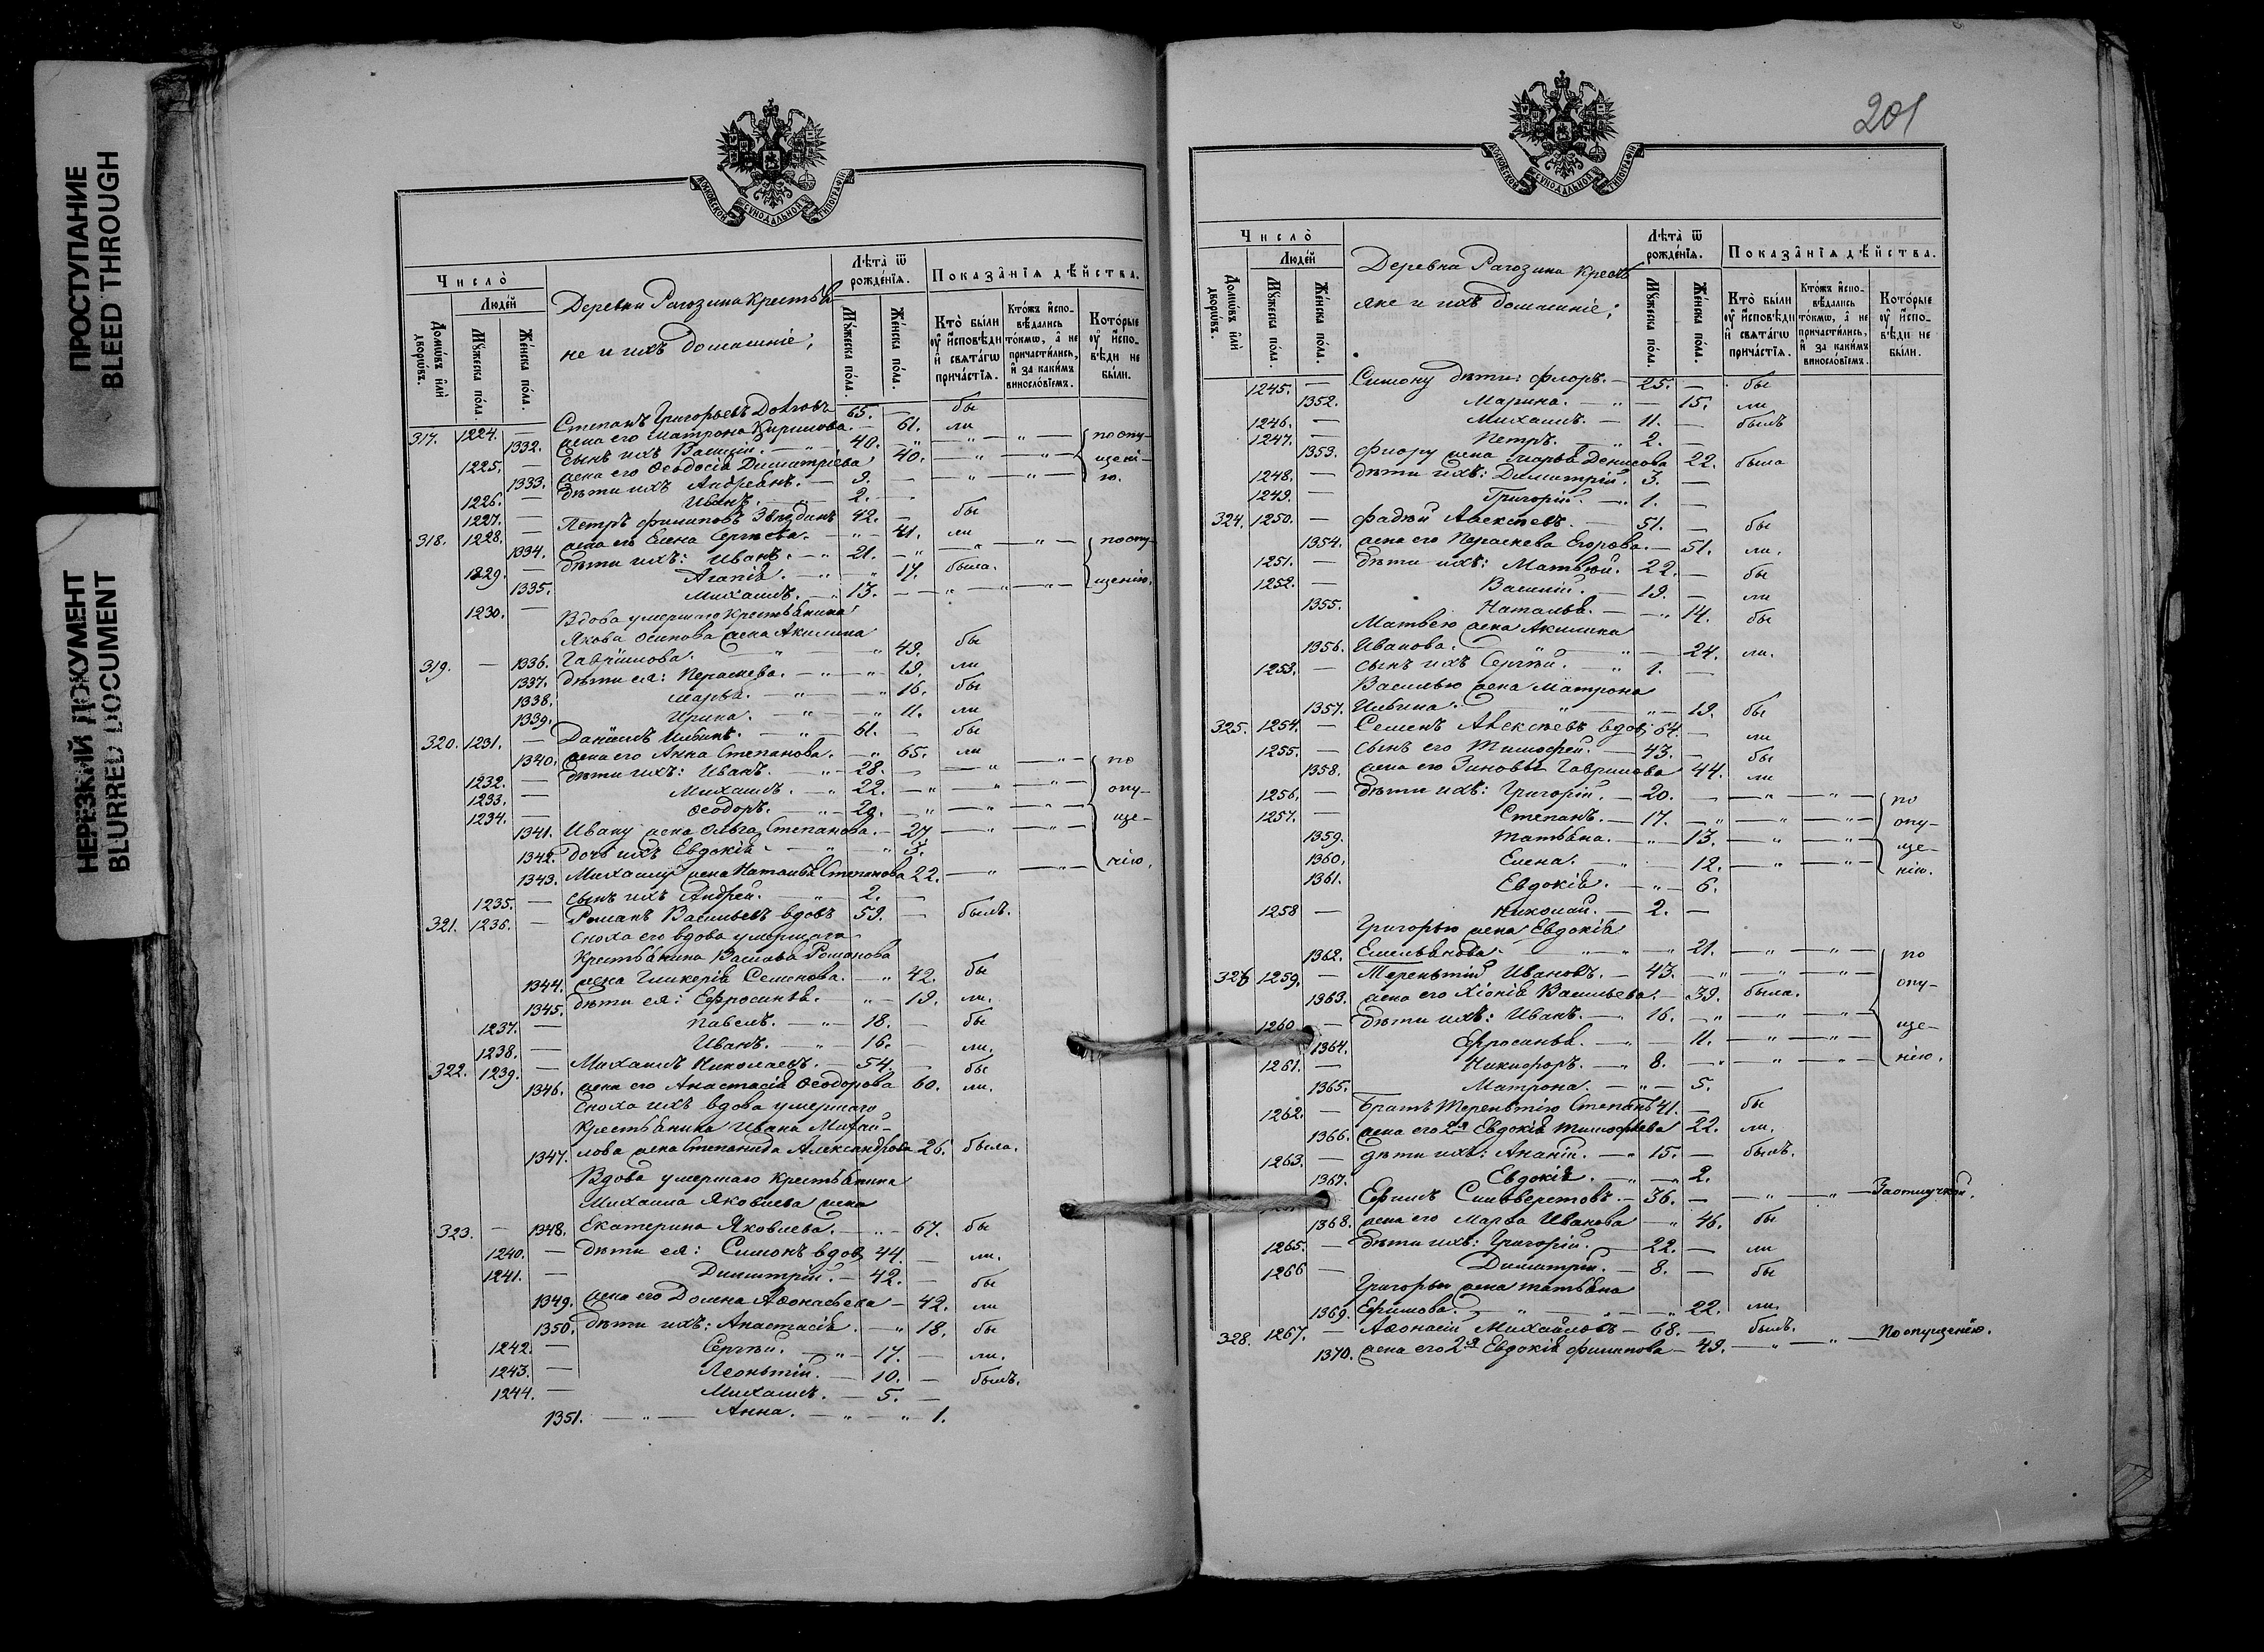 ПРОСТУПАНИЕ
BLEED THROUGH
НЕРЕЗКИЙ ДОКУМЕНТ
BLURRED DOCUMENT
МОСКОВСКОЙ СѴНОДАЛЬНОЙ ТИПОГРАФІИ
Число̀
Людей
Домѡвъ или дворѡвъ.
Мꙋжеска пола.
Женска пола.
Деревни Рагозина Крестья-
не и ихъ домашніе;
Лѣта ѿ рожденїѧ.
Мꙋжеска пола.
Женска пола.
Показанїѧ дѣйства.
Кто были оу исповѣди и свѧтагѡ причастїѧ.
Ктожъ исповѣдались токмѡ, а не причастились, и за какимъ винословїемъ.
Которые оу исповѣди не были.
317. 1224. — Степанъ Григорьевъ 65. — бы
1332. жена его Матрона Кирилова. — 61. ли
1225. — сынъ ихъ Василій. — 40. — „ — „ — по опу-
1333. жена его Ѳеодосія Димитріева 40. — „ — „ — щені-
1226. — дѣти ихъ Андреянъ. — 9. — „ — „ — ю.
1227. — Иванъ. — „ — 2. —
318. 1228. — Петръ Филиповъ 42. — бы
1334. жена его Елена Сергѣева. — „ — 41. ли
1229. — дѣти ихъ: Иванъ. — „ 21. — „ — „ — „ — по опу-
1335. Агапія. — „ — „ 17. была.
1230. — Михаилъ. — „ 13. — — „ — „ — щенію.
Вдова умершаго крестьянина
Якова Осипова жена Акилина
319. — 1336. Гавріилова. — „ — „ 49. бы
1337. дѣти ея: Параскева. — „ — „ 19. ли
1338. Марья. — „ — „ 16. бы
1339. Ирина. — „ — „ 11. ли
320. 1231. — Даніилъ Ильинъ. — „ — 61. — бы
1340. жена его Анна Степанова. — „ 65. ли
1232. — дѣти ихъ: Иванъ. — „ — 28. — — „ — „ — по
1233. — Михаилъ. — „ 22. — „ — „ — „ — опу-
1234. — Ѳеодоръ. — „ — 20. — „ — „ — „ — ще-
1341. Ивану жена Ольга Степанова. — 27 — „ — „ —
1342. дочь ихъ Евдокія. — „ — „ 3.
1343. Михаилу жена Наталья Степанова 22. — „ — „ — нію.
1235. — сынъ ихъ Андрей. — „ 2. —
321. 1236. — Романъ Васильевъ вдовъ 59. — былъ.
Сноха его вдова умершаго
крестьянина Василья Романова
1344. жена Гликерія Семенова. — „ 42. бы
1345. дѣти ея: Ефросинья. „ — 19. ли.
1237. — Павелъ. — „ — 18. — бы
1238. — Иванъ. — „ 16. — ли.
322. 1239. — Михаилъ Николаевъ. — 54. — бы
1346. жена его Анастасія Ѳеодорова 60. ли.
Сноха ихъ вдова умершаго
крестьянина Ивана Михай-
1347. лова жена Степанида Александрова 26. была.
Вдова умершаго крестьянина
Михаила Яковлева жена
323. — 1348. Екатерина Яковлева. — „ — 67. бы
1240. — дѣти ея: Симонъ вдов 44. — ли.
1241. — Димитрій. — 42. — бы
1349. жена его Домна Аѳонасьева — 42. ли
1350. дѣти ихъ: Анастасія. — „ 18. бы
1242. — Сергѣй. — „ — 17. — ли.
1243. — Леонтій. — 10. — былъ.
1244. — Михаилъ. — 5. —
1351. — „ — Анна. — „ — „ 1.
201
МОСКОВСКОЙ СѴНОДАЛЬНОЙ ТИПОГРАФІИ
Число̀
Людей
Домѡвъ или дворѡвъ.
Мꙋжеска пола.
Женска пола.
Деревни Рагозина Кресть
яне и ихъ домашніе;
Лѣта ѿ рожденїѧ.
Мꙋжеска пола.
Женска пола.
Показанїѧ дѣйства.
Кто были оу исповѣди и свѧтагѡ причастїѧ.
Ктожъ исповѣдались токмѡ, а не причастились, и за какимъ винословїемъ.
Которые оу исповѣди не были.
1245. — Симону дѣти: Флоръ. — 25. — бы
1352. Марина. — „ — 15. ли
1246. — Михаилъ. — 11. — былъ
1247. — Петръ. — „ 2. —
1353. Флору жена Марья Денисова 22. была
1248. — дѣти ихъ: Димитрій. 3. —
1249. — Григорій. — „ 1. —
324. 1250. — Фадѣй Алексѣевъ. — 51. — бы
1354. жена его Параскева Егорова. — 51. ли.
1251. — дѣти ихъ: Матвѣй. 22. — бы
1252. — Василій. — 19. — ли
1355. Наталья. — „ 14. бы
Матвею жена Акилина
1356. Иванова. „ „ — 24. ли.
1253. — сынъ ихъ Сергѣй. „ 1. —
Василью жена Матрона
1357. Ильина. „ „ — 19. бы
325. 1254. — Семенъ Алексѣевъ вдов 64. — ли
1255. — сынъ его Тимоѳей. — 43. — бы
1358. жена его Зиновья Гаврилова 44. ли
1256. — дѣти ихъ: Григорій. — 20. — „ — „ — по
1257. — Степанъ. — 17. — „ — „ — „ — опу-
1359. Татьяна. — „ — 13. — „ — „ — ще-
1360. Елена. — „ 12. — „ — „ — нію.
1361. Евдокія. — „ — 6.
1258 — Николай. — 2. —
Григорью жена Евдокія
1362. Емельянова. „ — „ 21. — „ — „ — по
326 1259. — Терентій Ивановъ. — 43. — „ — „ — „ — опу-
1363. жена его Хіонія Васильева. — 39. была.
1260 — дѣти ихъ: Иванъ. — „ 16. — „ — „ — „ — ще-
1364. Ефросинья. — „ — 11. — „ — „ —
1261. — Никифоръ. — „ 8. — „ — „ — „ — нію.
1365. Матрона. — „ — 5.
1262. — братъ Терентію Степанъ 41. — бы
1366. жена его 2я Евдокія Тимоѳеева 22. ли.
1263. — дѣти ихъ: Ананій. — „ 15. — былъ.
1367. Евдокія. — „ — 2.
Ефимъ Сильверстовъ. — 36. — — „ — „ — За отлучкой.
1368. жена его Марѳа Иванова — „ 46. бы
1265. — дѣти ихъ: Григорій. — 22. — ли
1266 — Димитрій. — 8. — бы
Григорью жена Татьяна
1369. Ефимова. — „ — „ — „ 22. ли.
328. 1267. — Аѳонасій Михайловъ — 68. — былъ.
1370. жена его 2я Евдокія Филипова — 49. — „ — „ — По опущенію.